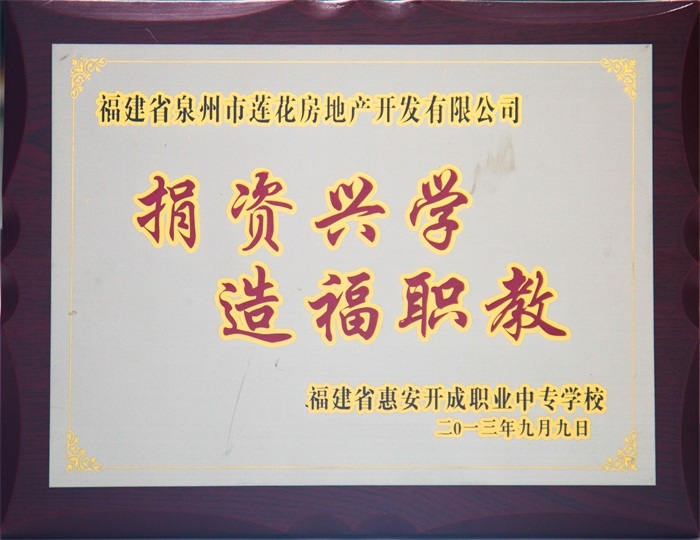 福建省泉州市莲花房地产开发有限公司
捐资兴学
造福职教
福建省惠安开成职业中专学校
二0一三年九月九日